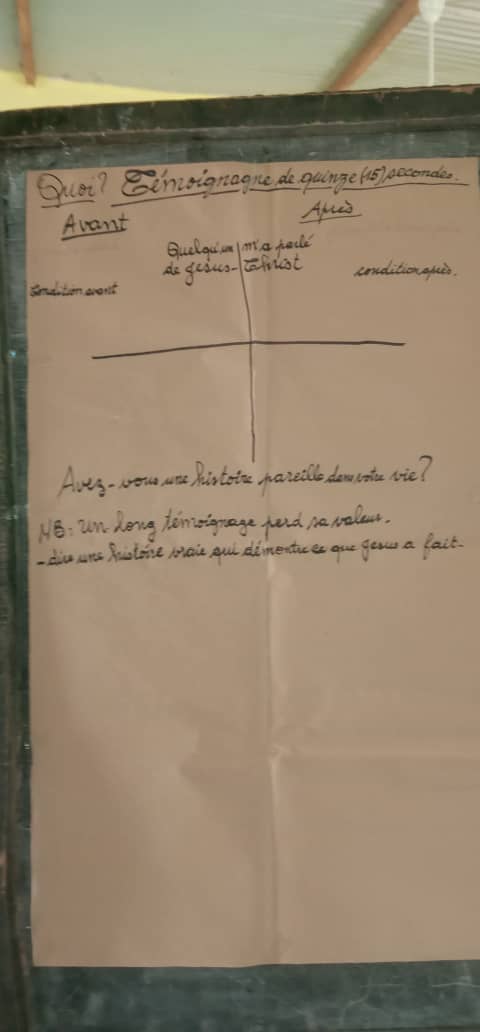 Quoi? Témoignagne de quinze (15) secondes.
Avant
Après
Quelqu'un m'a parlé
de Jesus-Christ
condition avant
condition après.
Avez-vous une histoire pareille dans votre vie?
NB: Un long témoignage perd sa valeur.
- dire une histoire vraie qui démontre ce que Jesus a fait-